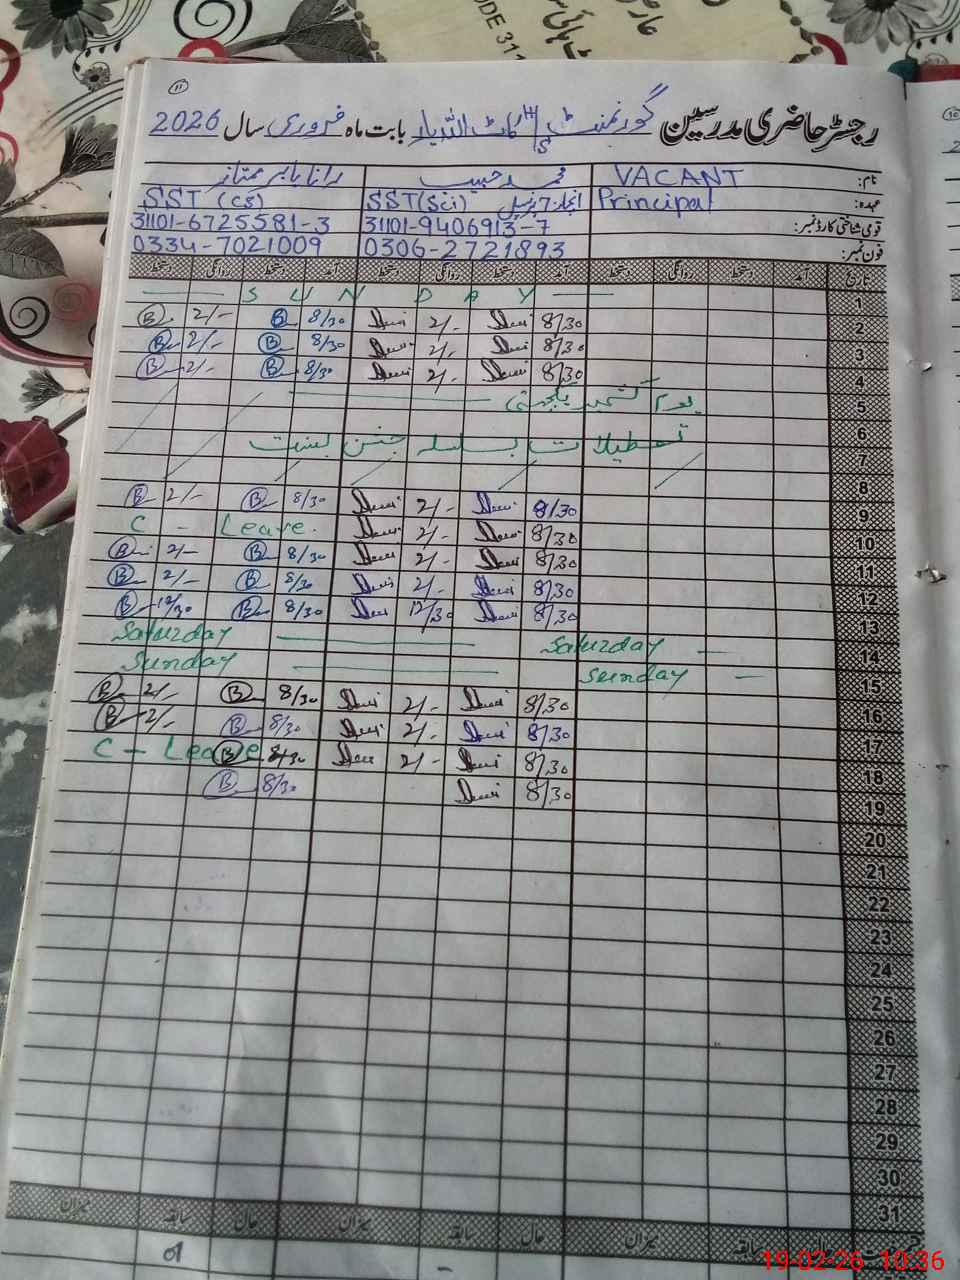 11
رجسٹر حاضری مدرسین گورنمنٹ H/S کاٹ اللہ یار بابت ماہ فروری سال 2026
نام: VACANT محمد حبیب رانا بابر ممتاز
عہدہ: Principal انچارج پرنسپل SST(Sci) SST (CS)
قومی شناختی کارڈ نمبر: 31101-9406913-7 31101-6725581-3
فون نمبر: 0306-2721893 0334-7021009
تاریخ آمد دستخط روانگی دستخط آمد دستخط روانگی دستخط آمد دستخط روانگی دستخط
1 S U N D A Y
2 8/30 2/- 8/30 B 2/- B
3 8/30 2/- 8/30 B 2/- B
4 8/30 2/- 8/30 B 2/- B
5 یوم کشمیر یکجہتی
6
7 تعطیلات بسلسلہ جشن بسنت
8
9 8/30 2/- 8/30 B 2/- B
10 8/30 2/- C - Leave.
11 8/30 2/- 8/30 B 2/- B
12 8/30 2/- 8/30 B 2/- B
13 8/30 12/30 8/30 B 12/30 B
14 Saturday Saturday
15 Sunday Sunday
16 8/30 2/- 8/30 B 2/- B
17 8/30 2/- 8/30 B 2/- B
18 8/30 2/- 8/30 B C - Leave
19 8/30 8/30 B
20
21
22
23
24
25
26
27
28
29
30
31
میزان سابقہ حال میزان سابقہ حال میزان سابقہ حال
01
19-02-26 10:36